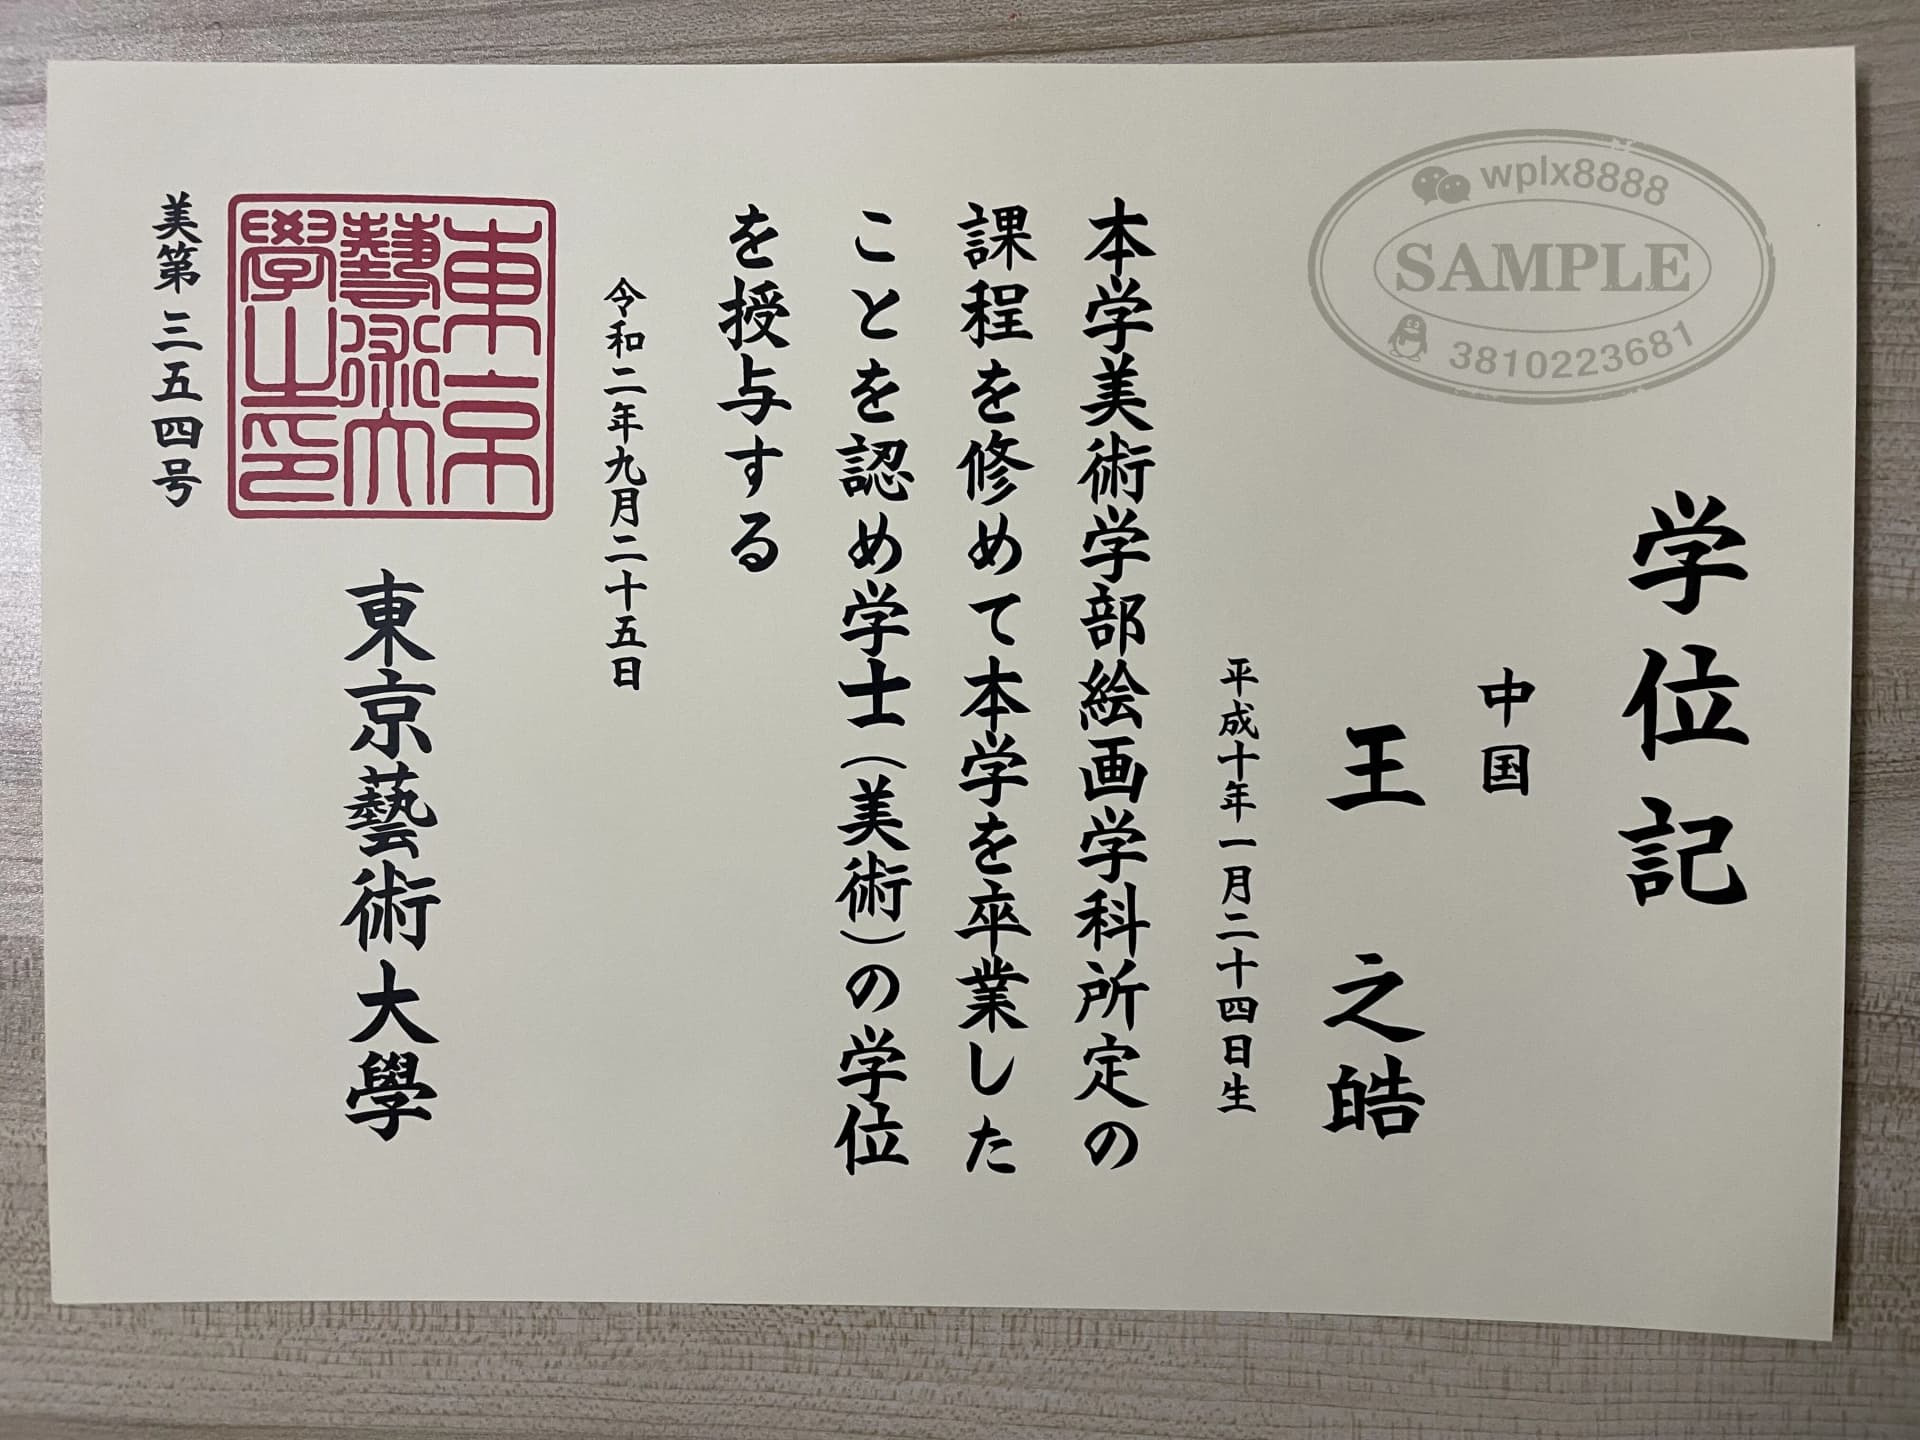 学位記
中国
王 之皓
平成十年一月二十四日生
本学美術学部絵画学科所定の
課程を修めて本学を卒業した
ことを認め学士(美術)の学位
を授与する
令和二年九月二十五日
東京藝術大學
東京
藝術大
學之印
美第三五四号
wplx8888
SAMPLE
3810223681